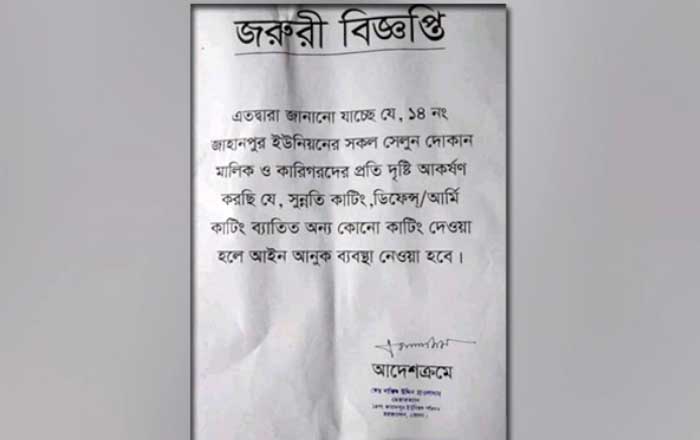 জরুরী বিজ্ঞপ্তি
এতদ্বারা জানানো যাচ্ছে যে, ১৪ নং
জাহানপুর ইউনিয়নের সকল সেলুন দোকান
মালিক ও কারিগরদের প্রতি দৃষ্টি আকর্ষণ
করছি যে, সুন্নতি কাটিং,ডিফেন্স/আর্মি
কাটিং ব্যাতিত অন্য কোনো কাটিং দেওয়া
হলে আইন আনুক ব্যবস্থা নেওয়া হবে।
আদেশক্রমে